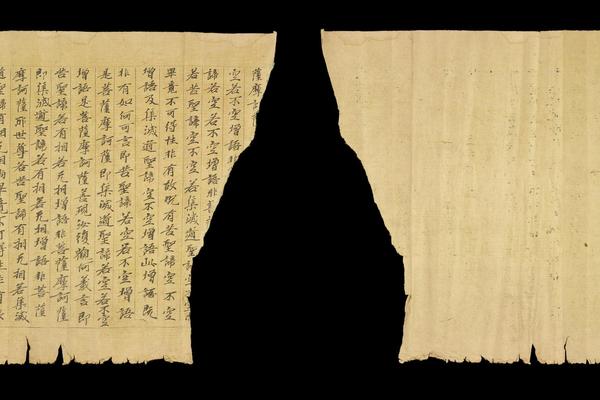 薩摩訶
空若不空增語非
諦若空若不空增語非
若苦聖諦空不空若集滅
畢竟不可得性非有故況有苦聖諦空不空
增語及集滅道聖諦空不空增語此增語既
非有如何可言即苦聖諦若空若不空增語
是菩薩摩訶薩即集滅道聖諦若空若不空
增語是菩薩摩訶薩善現汝復觀何義言即
苦聖諦若有相若无相增語非菩薩摩訶薩
即集滅道聖諦若有相若无相增語非菩薩
摩訶薩耶世尊若苦聖諦有相无相若集滅
道聖諦有相无相尚畢竟不可得性非有故